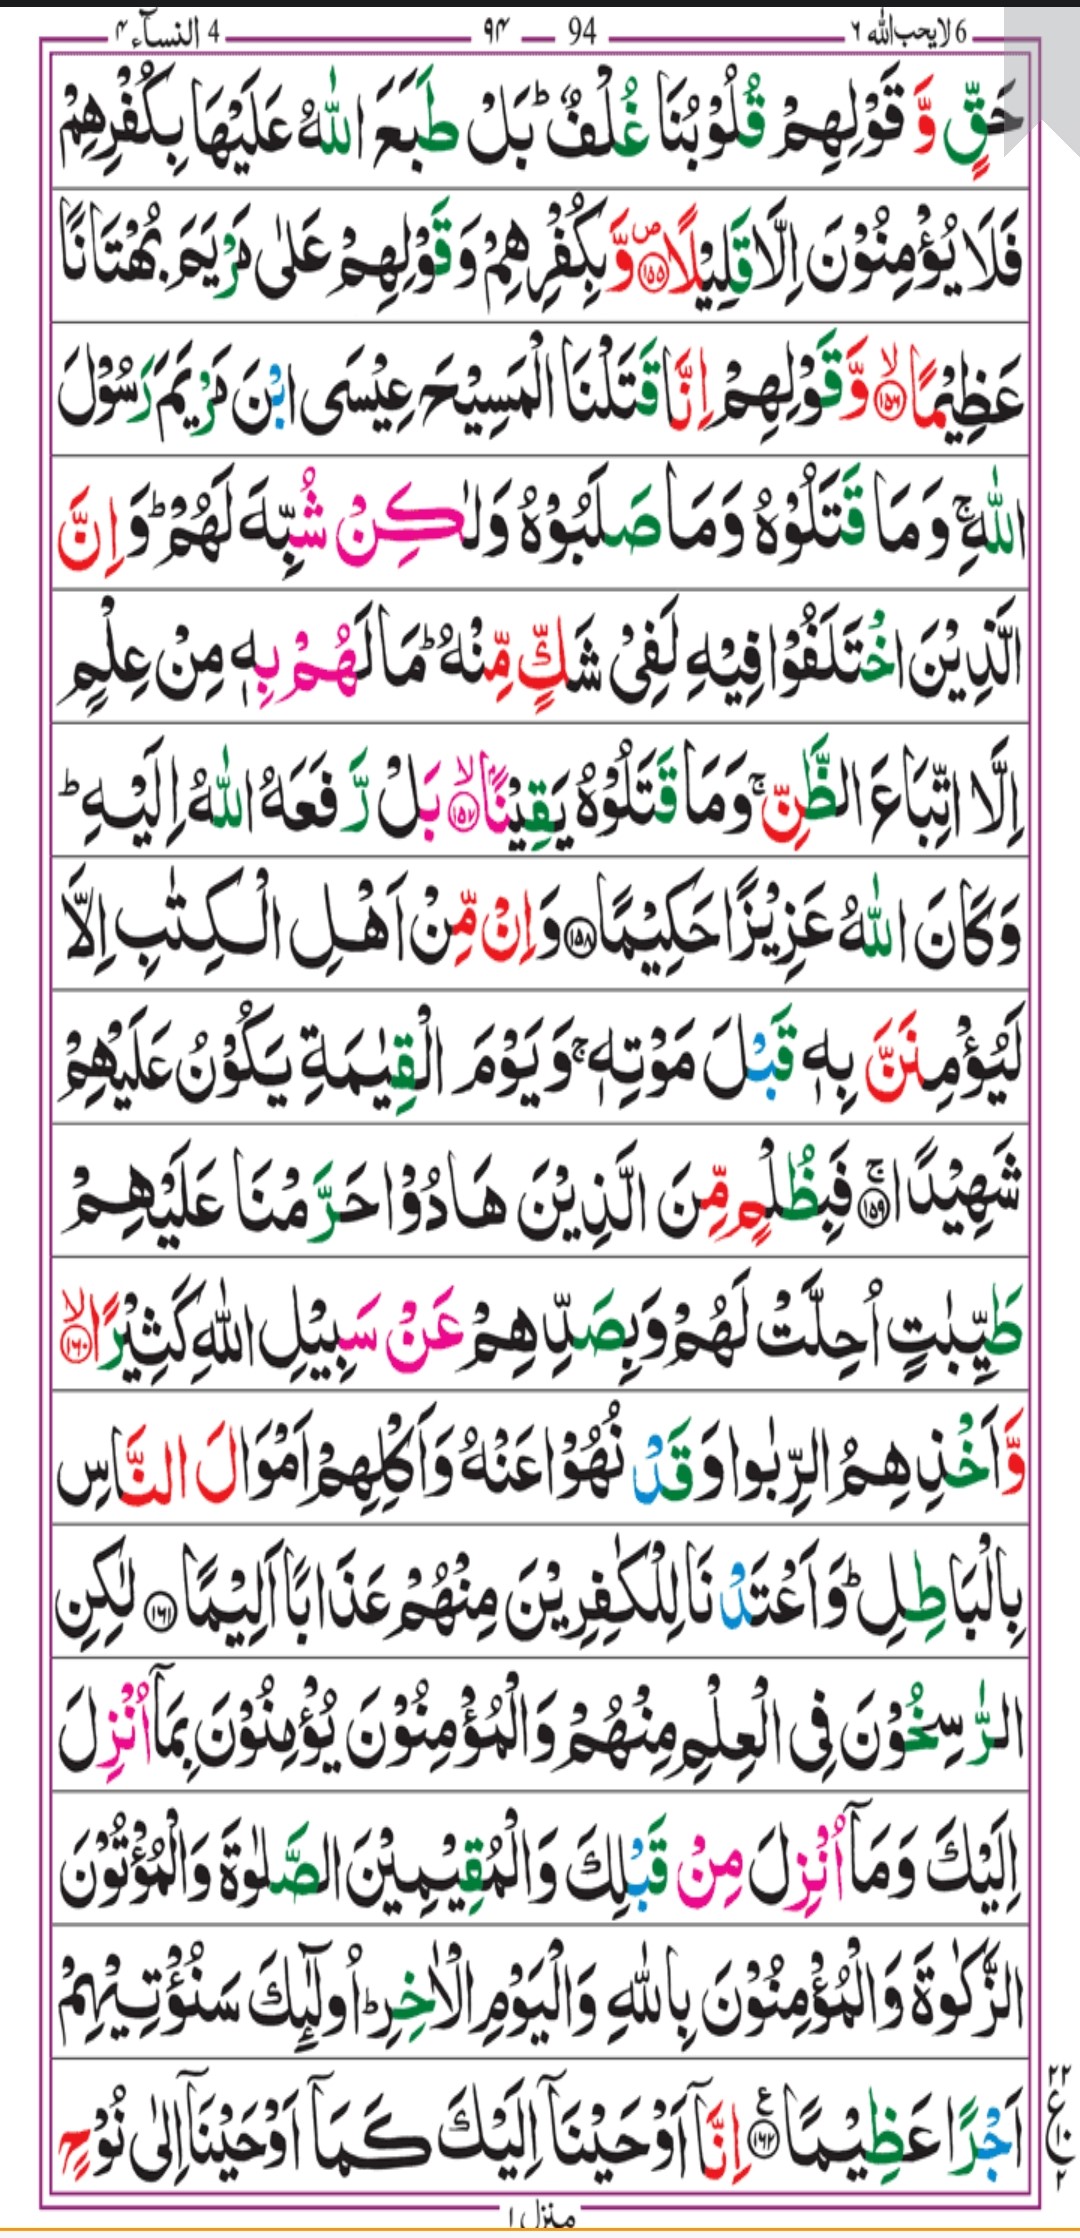 6 لا يحب الله ٦ — 94 — ٩٤ — 4 النسآء ٤
حَقٍّ وَّقَوْلِهِمْ قُلُوْبُنَا غُلْفٌ ؕ بَلْ طَبَعَ اللّٰهُ عَلَيْهَا بِكُفْرِهِمْ
فَلَا يُؤْمِنُوْنَ اِلَّا قَلِيْلًا ۪﴿۱۵۵﴾ وَّبِكُفْرِهِمْ وَقَوْلِهِمْ عَلٰى مَرْيَمَ بُهْتَانًا
عَظِيْمًا ۙ﴿۱۵۶﴾ وَّقَوْلِهِمْ اِنَّا قَتَلْنَا الْمَسِيْحَ عِيْسَى ابْنَ مَرْيَمَ رَسُوْلَ
اللّٰهِ ۚ وَمَا قَتَلُوْهُ وَمَا صَلَبُوْهُ وَلٰكِنْ شُبِّهَ لَهُمْ ؕ وَاِنَّ
الَّذِيْنَ اخْتَلَفُوْا فِيْهِ لَفِيْ شَكٍّ مِّنْهُ ؕ مَا لَهُمْ بِهٖ مِنْ عِلْمٍ
اِلَّا اتِّبَاعَ الظَّنِّ ۚ وَمَا قَتَلُوْهُ يَقِيْنًا ۙ﴿۱۵۷﴾ بَلْ رَّفَعَهُ اللّٰهُ اِلَيْهِ ؕ
وَكَانَ اللّٰهُ عَزِيْزًا حَكِيْمًا ﴿۱۵۸﴾ وَاِنْ مِّنْ اَهْلِ الْكِتٰبِ اِلَّا
لَيُؤْمِنَنَّ بِهٖ قَبْلَ مَوْتِهٖ ۚ وَيَوْمَ الْقِيٰمَةِ يَكُوْنُ عَلَيْهِمْ
شَهِيْدًا ۚ﴿۱۵۹﴾ فَبِظُلْمٍ مِّنَ الَّذِيْنَ هَادُوْا حَرَّمْنَا عَلَيْهِمْ
طَيِّبٰتٍ اُحِلَّتْ لَهُمْ وَبِصَدِّهِمْ عَنْ سَبِيْلِ اللّٰهِ كَثِيْرًا ۙ﴿۱۶۰﴾
وَّاَخْذِهِمُ الرِّبٰوا وَقَدْ نُهُوْا عَنْهُ وَاَكْلِهِمْ اَمْوَالَ النَّاسِ
بِالْبَاطِلِ ؕ وَاَعْتَدْنَا لِلْكٰفِرِيْنَ مِنْهُمْ عَذَابًا اَلِيْمًا ﴿۱۶۱﴾ لٰكِنِ
الرّٰسِخُوْنَ فِى الْعِلْمِ مِنْهُمْ وَالْمُؤْمِنُوْنَ يُؤْمِنُوْنَ بِمَآ اُنْزِلَ
اِلَيْكَ وَمَآ اُنْزِلَ مِنْ قَبْلِكَ وَالْمُقِيْمِيْنَ الصَّلٰوةَ وَالْمُؤْتُوْنَ
الزَّكٰوةَ وَالْمُؤْمِنُوْنَ بِاللّٰهِ وَالْيَوْمِ الْاٰخِرِ ؕ اُولٰٓئِكَ سَنُؤْتِيْهِمْ
اَجْرًا عَظِيْمًا ﴿۱۶۲﴾ ع اِنَّآ اَوْحَيْنَآ اِلَيْكَ كَمَآ اَوْحَيْنَآ اِلٰى نُوْحٍ
۲۲
ع ۱۰
۲
منزل ۱